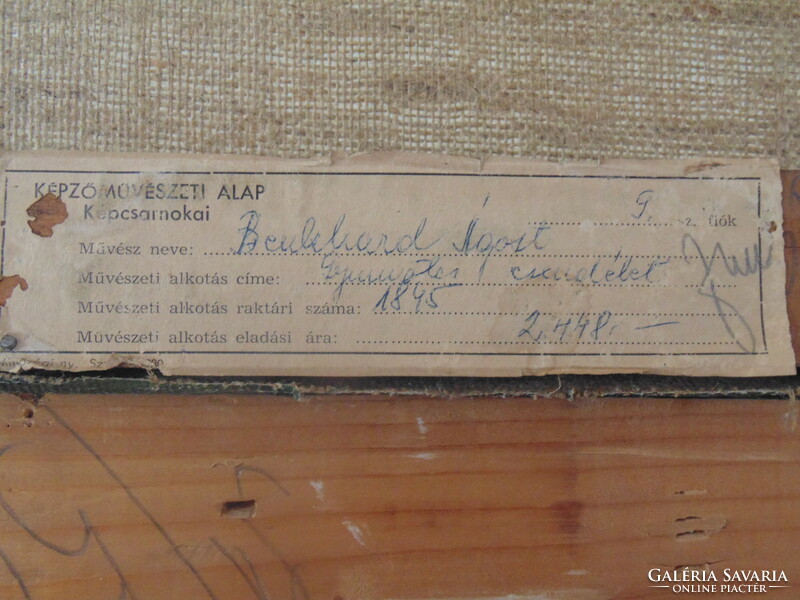 KÉPZŐMŰVÉSZETI ALAP
Képcsarnokai
9. sz. fiók
Művész neve: Benkhard Ágost
Művészeti alkotás címe: Gyümölcsös csendélet
Művészeti alkotás raktári száma: 1895
Művészeti alkotás eladási ára: 2,448.—
GALÉRIA SAVARIA
ONLINE PIACTÉR